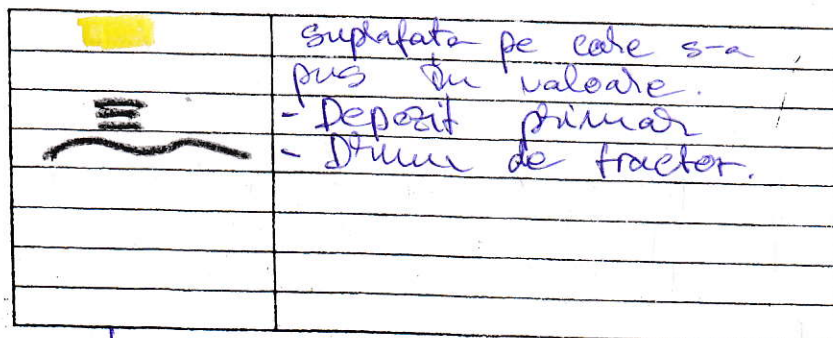 suprafata pe care s-a
pus în valoare.
- Depozit primar
- Drum de tractor.